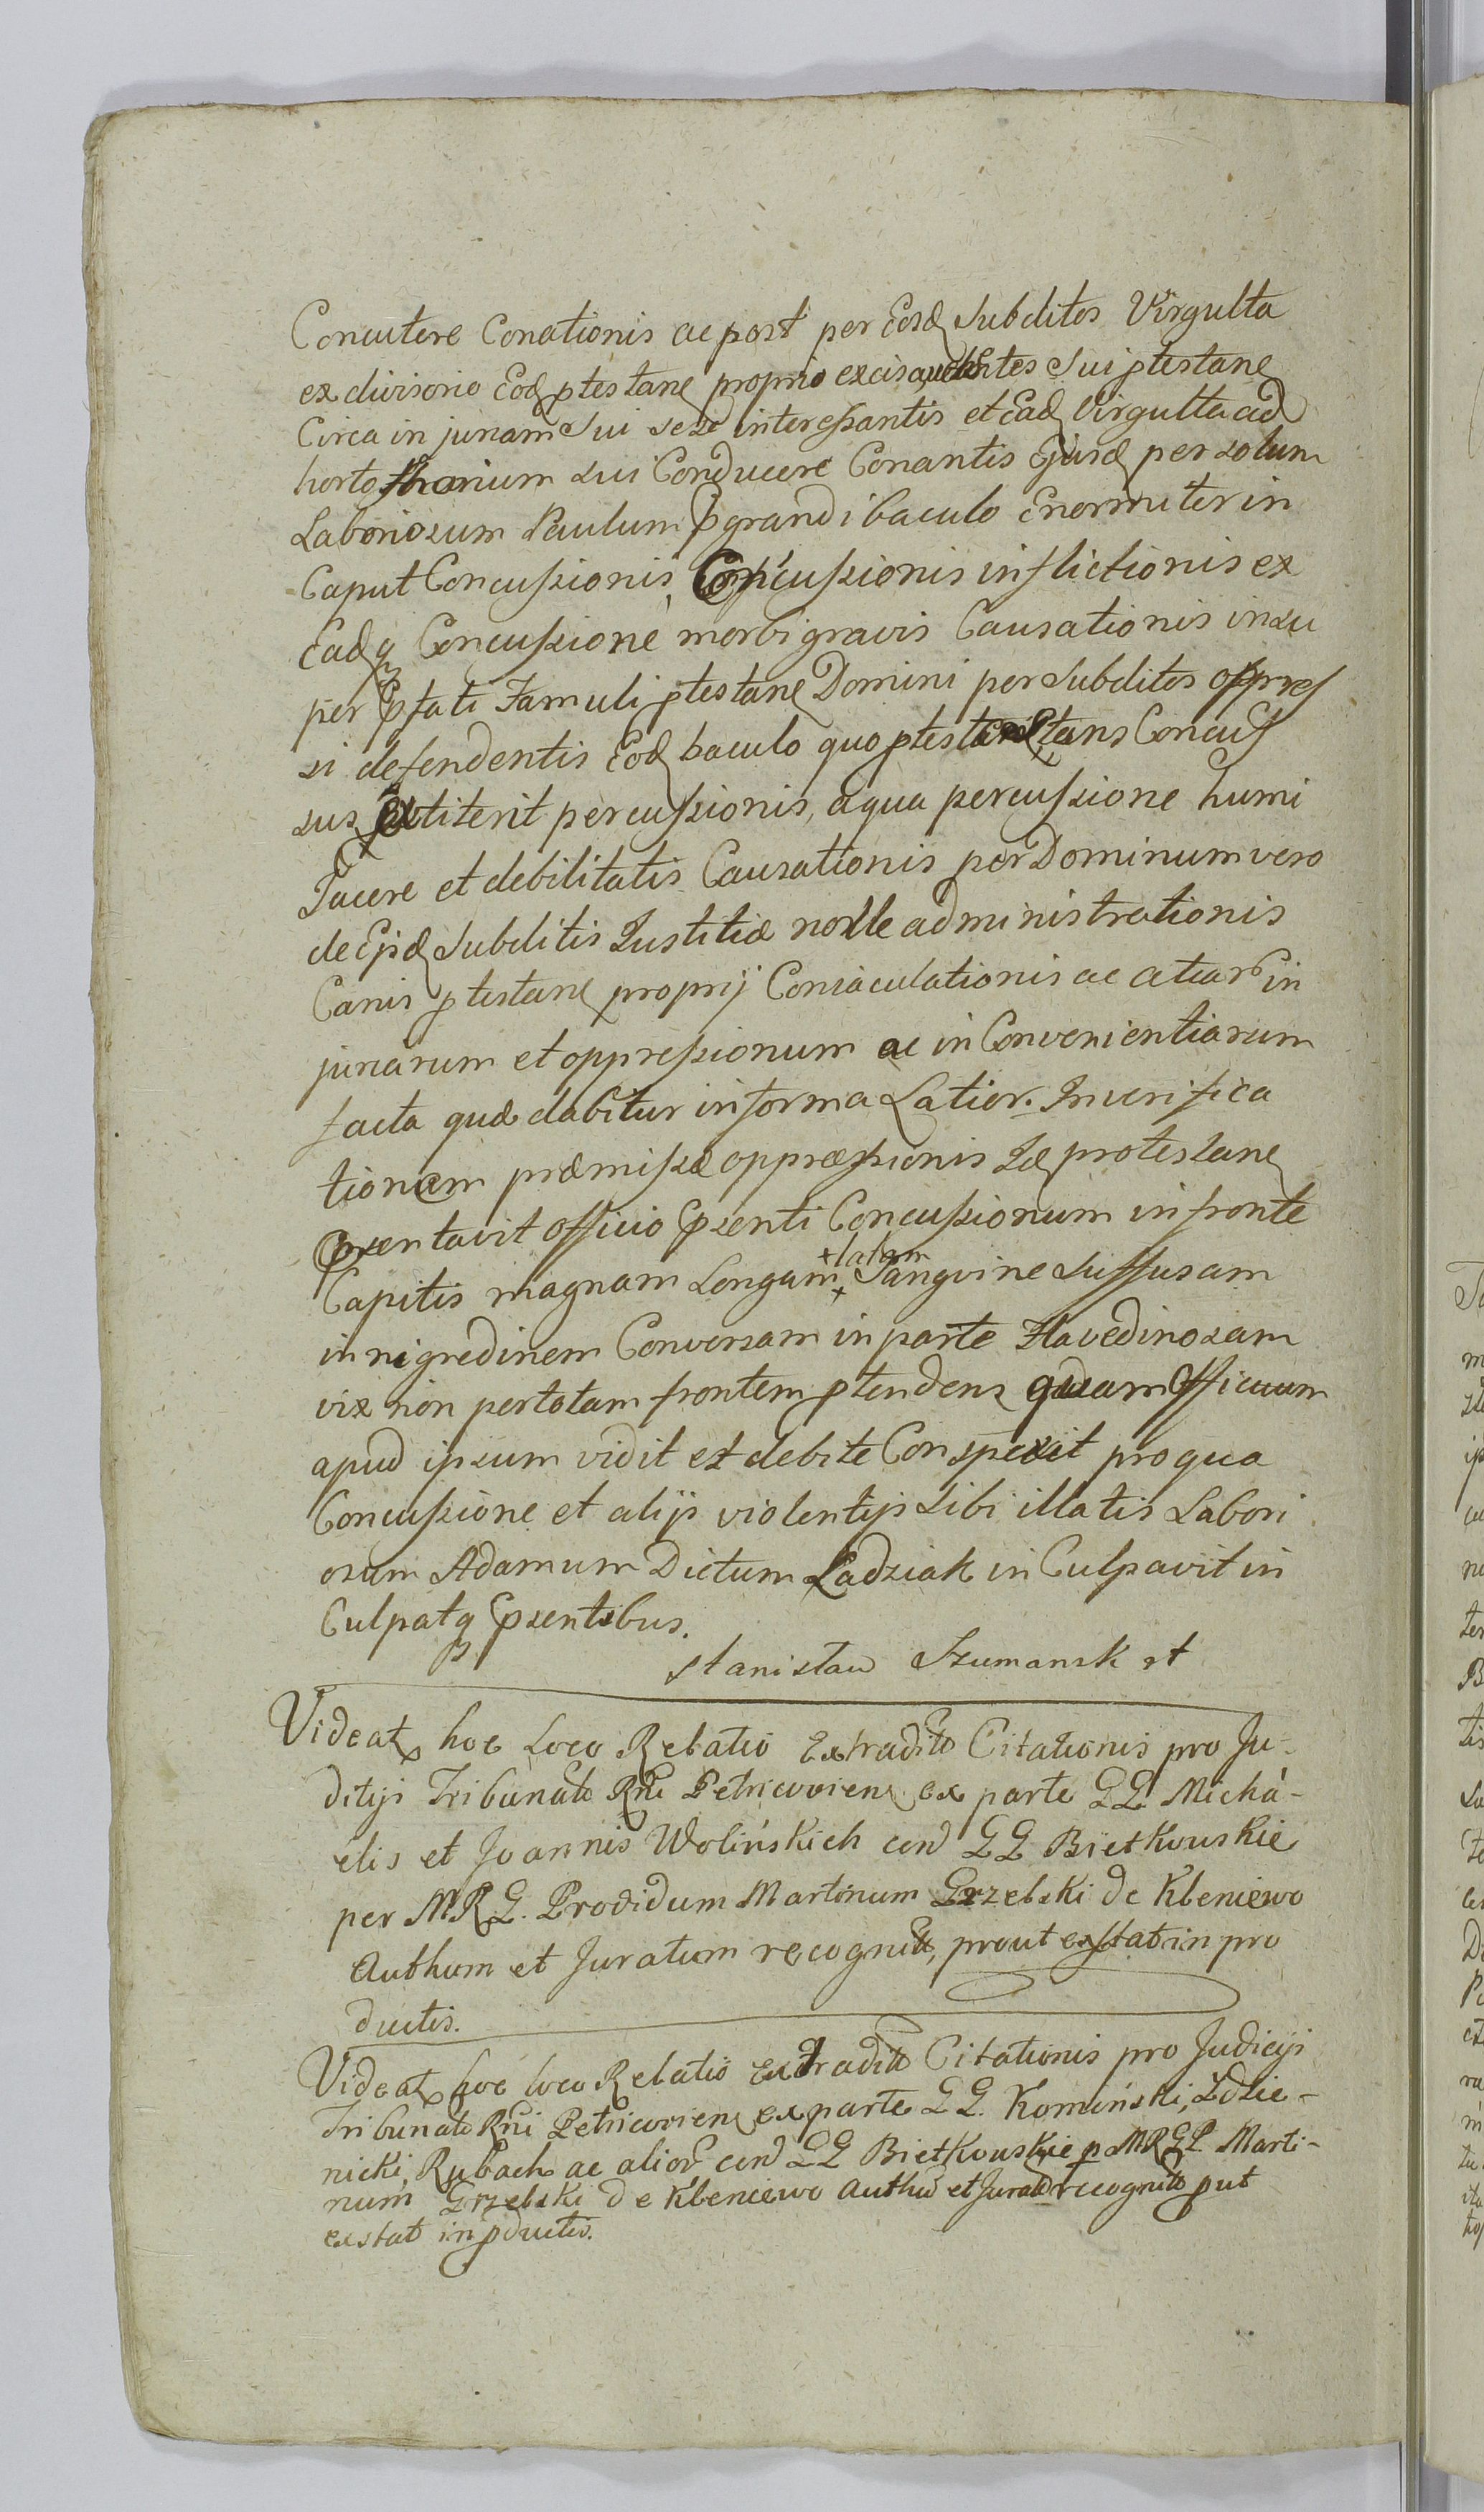 Concutere Conationis ac post per Eosd Subditos Virgulta
ex divisorio Eod ptestane proprio excis vehentes Sui ptestane
Circa in juriam Sui sese interessantis et Ead Virgulta ad
horto sui Conducere Conantis Ejusd per solum
Laboriosum Paulum pgrandi baculo Enormiter in
Caput Concussionis, Concussionis inflictionis ex
Eadq Concussione morbi gravis Causationis insu
per pfati Famuli ptestane Domini per Subditos oppres
si defendentis Eod baculo quo ptestans Concus
sus extiterit percussionis, a qua percussione humi
Jacere et debilitatis Causationis per Dominum vero
de Ejsd Subditis Justitiæ nolle administrationis
Canis ptestane proprij Coniaculationis ac aliar in
juriarum et oppressionum ac in Convenientiarum
facta quæ dabitur in forma Latior. In verifica
tionem præmissæ oppræssionis Id protestane
præsentavit officio psenti Concussionum in fronte
Capitis magnam Longam + +latam Sangvine Suffusam
in nigredinem Conversam in parte Flavedinosam
vix non per totam frontem ptendens quam Officium
apud ipsum vidit et debite Conspexit pro qua
Concussione et alijs violentijs Sibi illatis Labori
osum Adamum Dictum Ladziak in Culpavit in
Culpatq psentibus.
Stanisław Szumansk st
Videat hoc Loco Relatio Extradito Citationis pro Ju-
ditijs Tribunalo Rni Petricovien ex parte GG Michá-
elis et Joannis Wolińskich con GG Bietkouskie
per MRG. Providum Martinum Grzelski de Kleniewo
Authum et Juratum recognito, prout exstat in pro
ductis.
Videat hoc loco Relatio extradito Citationis pro Judicijs
Tribunalo Rni Petricovien ex parte GG. Komiński, Zdzie-
nicki, Rybach ac alior con GG Bietkouskie p MRGP Marti-
num Grzelski de Kleniewo Authu et Jurat recognito put
exstat in pductis.